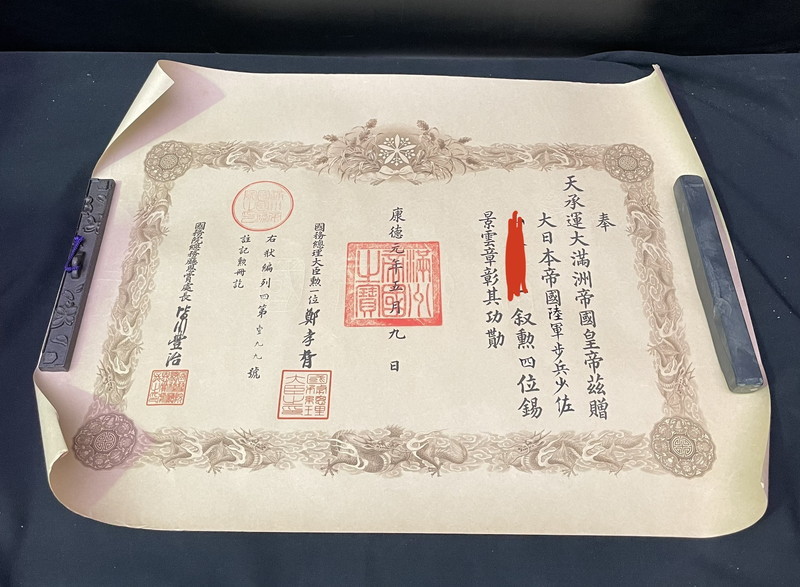 奉
天承運大滿洲帝國皇帝茲贈
大日本帝國陸軍步兵少佐
叙勲四位錫
景雲章彰其功勛
康德元年五月九日
滿洲帝國之寶
國務總理大臣勲一位鄭孝胥
右狀編列四第壹九九號
註記勲冊訖
國務院總務廳恩賞處長皆川豐治